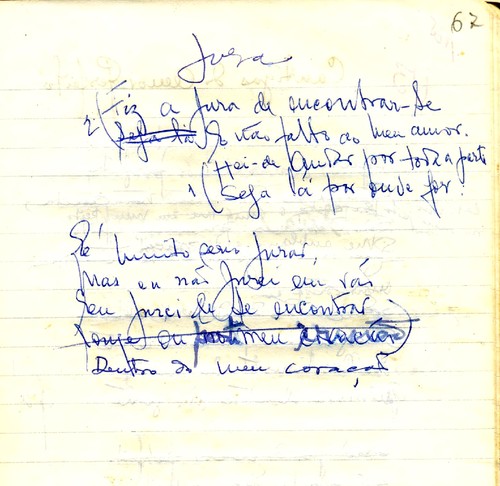 67
Jura
2 Fiz a jura de encontrar-te
Seja lá E não falto ao meu amor.
Hei-de andar por toda a parte
1 Seja lá por onde for!
É muito serio jurar,
Mas eu não jurei em vão
Eu jurei de te encontrar
Longe ou meu coração
Dentro do meu coração